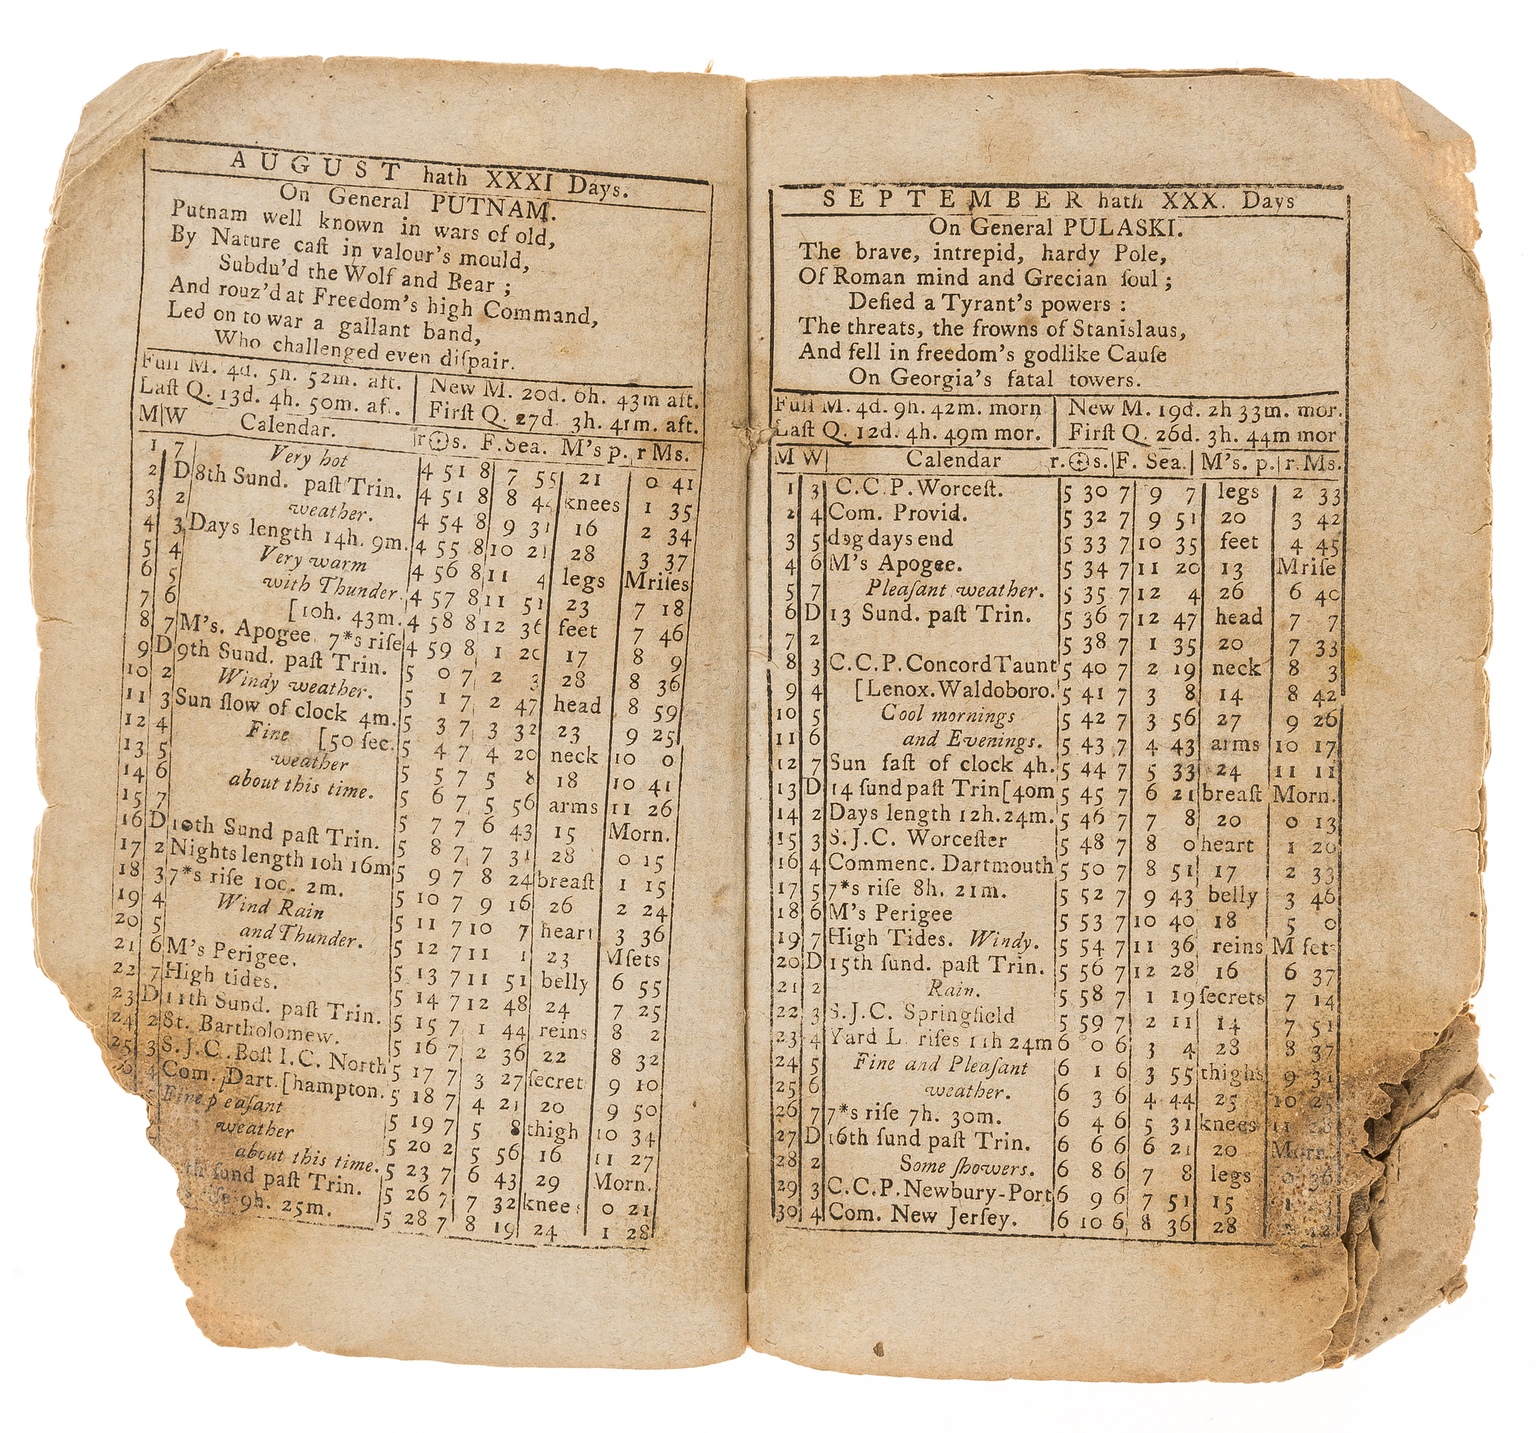 AUGUST hath XXXI Days.
On General PUTNAM.
Putnam well known in wars of old,
By Nature caſt in valour's mould,
Subdu'd the Wolf and Bear ;
And rouz'd at Freedom's high Command,
Led on to war a gallant band,
Who challenged even diſpair.
Full M. 4d. 5h. 52m. aft. New M. 20d. 6h. 43m aft.
Laſt Q. 13d. 4h. 50m. af.. Firſt Q. 27d. 3h. 41m. aft.
M W Calendar. r☉s. F.Sea. M's p. r Ms.
1 7 Very hot 4 51 8 7 55 21 0 41
2 D 8th Sund. paſt Trin. 4 51 8 8 44 knees 1 35
3 2 weather. 4 54 8 9 31 16 2 34
4 3 Days length 14h. 9m. 4 55 8 10 21 28 3 37
5 4 Very warm 4 56 8 11 4 legs Mriſes
6 5 with Thunder. 4 57 8 11 51 23 7 18
7 6 [10h. 43m. 4 58 8 12 36 feet 7 46
8 7 M's. Apogee 7*s riſe 4 59 8 1 20 17 8 9
9 D 9th Sund. paſt Trin. 5 0 7 2 3 28 8 36
10 2 Windy weather. 5 1 7 2 47 head 8 59
11 3 Sun ſlow of clock 4m. 5 3 7 3 32 23 9 25
12 4 Fine [50 ſec. 5 4 7 4 20 neck 10 0
13 5 weather 5 5 7 5 8 18 10 41
14 6 about this time. 5 6 7 5 56 arms 11 26
15 7 5 7 7 6 43 15 Morn.
16 D 10th Sund paſt Trin. 5 8 7 7 31 28 0 15
17 2 Nights length 10h 16m 5 9 7 8 24 breaſt 1 15
18 3 7*s riſe 10c. 2m. 5 10 7 9 16 26 2 24
19 4 Wind Rain 5 11 7 10 7 heart 3 36
20 5 and Thunder. 5 12 7 11 1 23 Mſets
21 6 M's Perigee. 5 13 7 11 51 belly 6 55
22 7 High tides. 5 14 7 12 48 24 7 25
23 D 11th Sund. paſt Trin. 5 15 7 1 44 reins 8 2
24 2 St. Bartholomew. 5 16 7 2 36 22 8 32
25 3 S.J.C. Boſt I.C. North 5 17 7 3 27 ſecret 9 10
4 Com. Dart. [hampton. 5 18 7 4 21 20 9 50
5 Fine pleaſant 5 19 7 5 8 thigh 10 34
weather 5 20 2 5 56 16 11 27
about this time. 5 23 7 6 43 29 Morn.
th ſund paſt Trin. 5 26 7 7 32 knees 0 21
9h. 25m. 5 28 7 8 19 24 1 28
SEPTEMBER hath XXX. Days
On General PULASKI.
The brave, intrepid, hardy Pole,
Of Roman mind and Grecian ſoul ;
Defied a Tyrant's powers :
The threats, the frowns of Stanislaus,
And fell in freedom's godlike Cauſe
On Georgia's fatal towers.
Full M. 4d. 9h. 42m. morn New M. 19d. 2h 33m. mor.
Laſt Q. 12d. 4h. 49m mor. Firſt Q. 26d. 3h. 44m mor
M W Calendar r.☉s. F. Sea. M's. p. r. Ms.
1 3 C.C.P. Worceſt. 5 30 7 9 7 legs 2 33
2 4 Com. Provid. 5 32 7 9 51 20 3 42
3 5 dog days end 5 33 7 10 35 feet 4 45
4 6 M's Apogee. 5 34 7 11 20 13 Mriſe
5 7 Pleaſant weather. 5 35 7 12 4 26 6 40
6 D 13 Sund. paſt Trin. 5 36 7 12 47 head 7 7
7 2 5 38 7 1 35 20 7 33
8 3 C.C.P. Concord Taunt 5 40 7 2 19 neck 8 3
9 4 [Lenox. Waldoboro. 5 41 7 3 8 14 8 42
10 5 Cool mornings 5 42 7 3 56 27 9 26
11 6 and Evenings. 5 43 7 4 43 arms 10 17
12 7 Sun faſt of clock 4h. 5 44 7 5 33 24 11 11
13 D 14 ſund paſt Trin [40m 5 45 7 6 21 breaſt Morn.
14 2 Days length 12h. 24m. 5 46 7 7 8 20 0 13
15 3 S.J.C. Worceſter 5 48 7 8 0 heart 1 20
16 4 Commenc. Dartmouth 5 50 7 8 51 17 2 33
17 5 7*s riſe 8h. 21m. 5 52 7 9 43 belly 3 46
18 6 M's Perigee 5 53 7 10 40 18 5 0
19 7 High Tides. Windy. 5 54 7 11 36 reins M ſets
20 D 15th ſund. paſt Trin. 5 56 7 12 28 16 6 37
21 2 Rain. 5 58 7 1 19 ſecrets 7 14
22 3 S.J.C. Springfield 5 59 7 2 11 14 7 51
23 4 Yard L. riſes 11h 24m 6 0 6 3 4 28 8 37
24 5 Fine and Pleaſant 6 1 6 3 55 thighs 9 31
25 6 weather. 6 3 6 4 44 25 10 25
26 7 7*s riſe 7h. 30m. 6 4 6 5 31 knees 11 28
27 D 16th ſund paſt Trin. 6 6 6 6 21 20 Morn.
28 2 Some ſhowers. 6 8 6 7 8 legs 0 36
29 3 C.C.P. Newbury-Port 6 9 6 7 51 15
30 4 Com. New Jerſey. 6 10 6 8 36 28